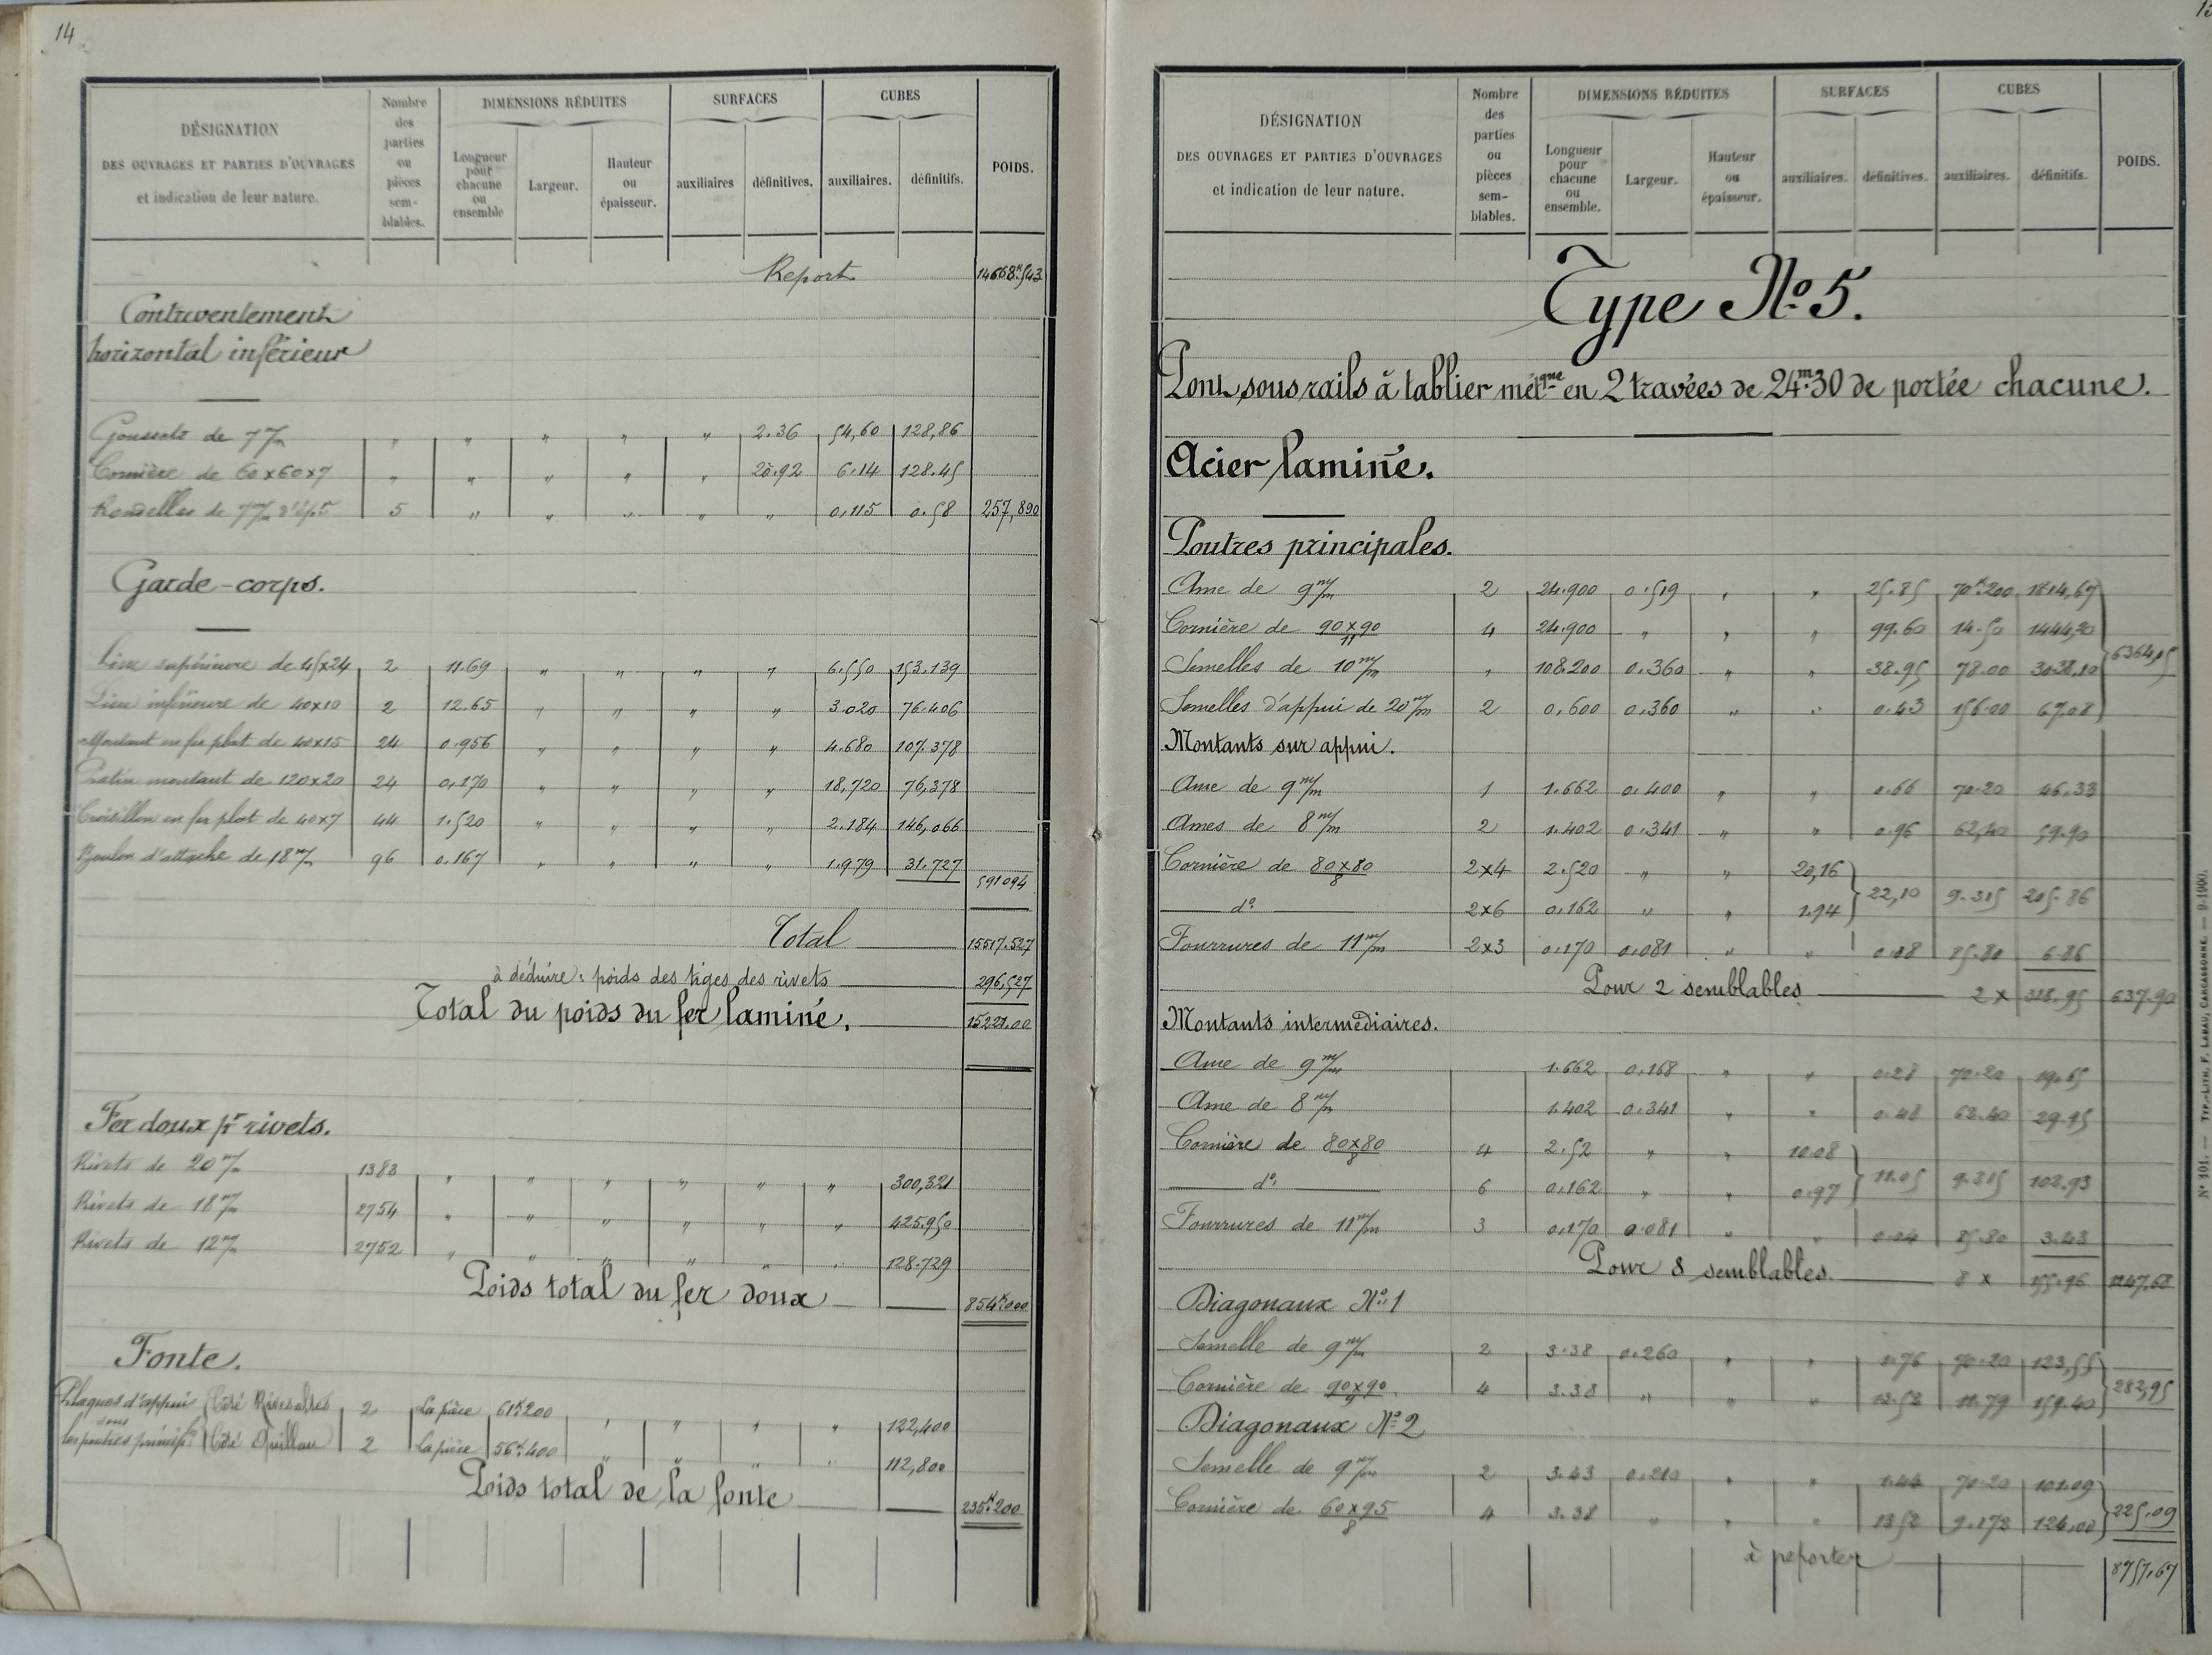 14
DÉSIGNATION
DES OUVRAGES ET PARTIES D'OUVRAGES
et indication de leur nature.
Nombre des parties ou pièces sem-blables.
DIMENSIONS RÉDUITES
Longueur pour chacune ou ensemble
Largeur.
Hauteur ou épaisseur.
SURFACES
auxiliaires
définitives.
CUBES
auxiliaires.
définitifs.
POIDS.
Report 14668k,543
Contreventement
horizontal inférieur
Goussets de 7m/m " " " " " 2.36 54,60 128,86
Cornière de 60x60x7 " " " " " 20.92 6.14 128.45
Rondelles de 7m/m d'épr 5 " " " " " 0,115 0.58 257,890
Garde-corps.
Lisse supérieure de 45x24 2 11.69 " " " " 6.550 153.139
Lisse inférieure de 40x10 2 12.65 " " " " 3.020 76.406
Montant en fer plat de 40x15 24 0.956 " " " " 4.680 107.378
Patin montant de 120x20 24 0,170 " " " " 18,720 76,378
Croisillon en fer plat de 40x7 44 1.520 " " " " 2.184 146,066
Boulon d'attache de 18m/m 96 0.167 " " " " 1.979 31.727
591094
Total 15517.527
à déduire: poids des tiges des rivets 296,527
Total du poids du fer laminé. 15221.00
Fer doux pr rivets.
Rivets de 20m/m 1383 " " " " " " 300,321
Rivets de 18m/m 2754 " " " " " " 425.950
Rivets de 12m/m 2752 " " " " " " 128.729
Poids total du fer doux 854k.000
Fonte.
Plaques d'appui (Côté Rivesaltes 2 La pièce 61k200 " " " " 122,400
sous
les poutres princip.les (Côté Quillan 2 La pièce 56k.400 " " " " 112,800
Poids total de la fonte 235k.200
15
DÉSIGNATION
DES OUVRAGES ET PARTIES D'OUVRAGES
et indication de leur nature.
Nombre des parties ou pièces sem-blables.
DIMENSIONS RÉDUITES
Longueur pour chacune ou ensemble.
Largeur.
Hauteur ou épaisseur.
SURFACES
auxiliaires.
définitives.
CUBES
auxiliaires.
définitifs.
POIDS.
Type No 5.
Pont sous rails à tablier métque en 2 travées de 24m.30 de portée chacune.
Acier laminé.
Poutres principales.
Ame de 9m/m 2 24.900 0.519 " " 25.85 70k200 1814,67
Cornière de 90x90/11 4 24.900 " " " 99.60 14.50 1444,20
Semelles de 10m/m " 108.200 0.360 " " 38.95 78.00 3038,10 6364,05
Semelles d'appui de 20m/m 2 0,600 0,360 " " 0.43 156.00 67,08
Montants sur appui.
Ame de 9m/m 1 1.662 0.400 " " 0.66 70.20 46.33
Ames de 8m/m 2 1.402 0.341 " " 0.96 62,40 59.90
Cornière de 80x80/8 2x4 2.520 " " 20,16
22,10 9.315 205.86
do 2x6 0.162 " " 1.94
Fourrures de 11m/m 2x3 0.170 0.081 " " 0.08 85.80 6.86
Pour 2 semblables 2 x 318.95 637.90
Montants intermédiaires.
Ame de 9m/m 1.662 0.168 " " 0.28 70.20 19.65
Ame de 8m/m 1.402 0.341 " " 0.48 62.40 29.95
Cornière de 80x80/8 4 2.52 " " 10.08
11.05 9.315 102.93
do 6 0.162 " " 0.97
Fourrures de 11m/m 3 0.170 0.081 " " 0.04 85.80 3.43
Pour 8 semblables. 8 x 155.96 1247.68
Diagonaux No 1
Semelle de 9m/m 2 3.38 0.260 " " 1.76 70.20 123,55
Cornière de 90x90/9 4 3.38 " " " 13.52 11.79 159.40 282,95
Diagonaux No 2
Semelle de 9m/m 2 3.43 0.210 " " 1.44 70.20 101.09
Cornière de 60x95/8 4 3.38 " " " 13.52 9.172 124,00 225.09
à reporter 8757.67
No 101. — TYP.-LITH. F. LABAU, CARCASSONNE. — 9-1900.